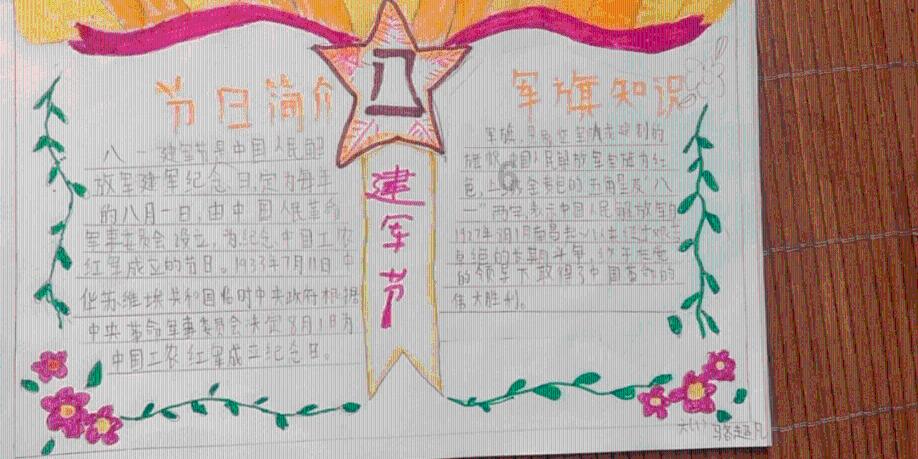 节日简介
八一
建军节
军旗知识
八一建军节是中国人民解
放军建军纪念日,定为每年
的八月一日,由中国人民革命
军事委员会设立,为纪念中国工农
红军成立的节日。1933年7月11日中
华苏维埃共和国临时中央政府根据
中央革命军事委员会决定8月1日为
中国工农红军成立纪念日。
军旗
国人民解放军军旗为红
色,上 金黄色的五角星及"八
一"两字,表示中国人民解放军自
1927年8月1日南昌起
的长期斗争,终于在党
的领导下取得了中国革命的
伟大胜利。
6
六(1)